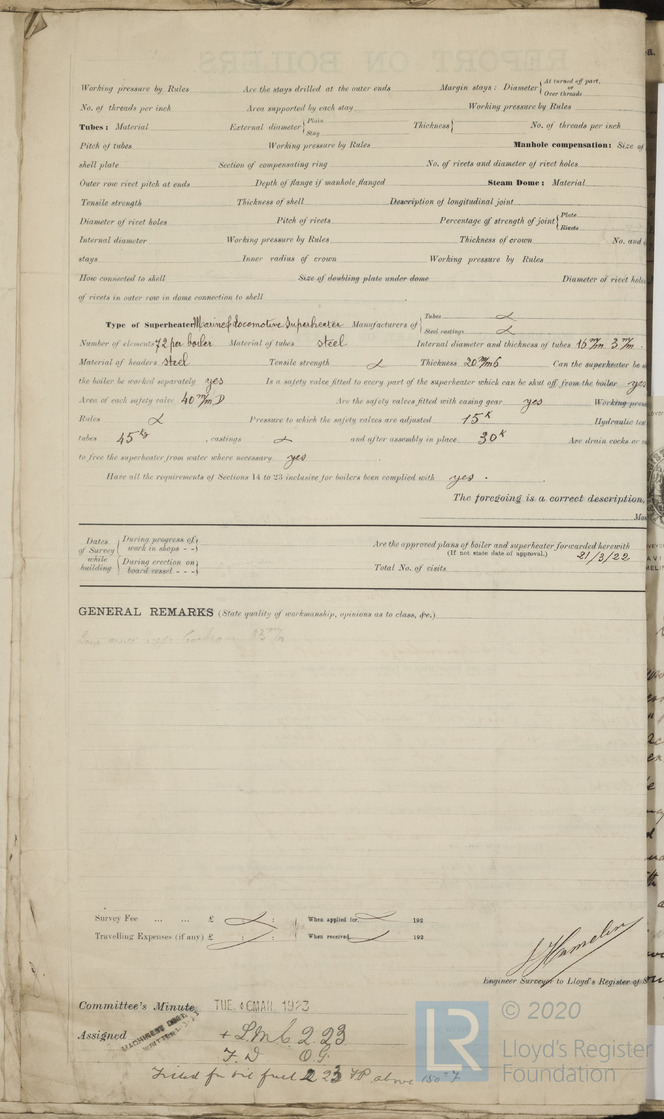 Working pressure by Rules Are the stays drilled at the outer ends Margin stays: Diameter { At turned off part, or Over threads
No. of threads per inch Area supported by each stay Working pressure by Rules
Tubes: Material External diameter { Plain Stay Thickness { No. of threads per inch
Pitch of tubes Working pressure by Rules Manhole compensation: Size of
shell plate Section of compensating ring No. of rivets and diameter of rivet holes
Outer row rivet pitch at ends Depth of flange if manhole flanged Steam Dome: Material
Tensile strength Thickness of shell Description of longitudinal joint
Diameter of rivet holes Pitch of rivets Percentage of strength of joint { Plate Rivets
Internal diameter Working pressure by Rules Thickness of crown No. and
stays Inner radius of crown Working pressure by Rules
How connected to shell Size of doubling plate under dome Diameter of rivet holes
of rivets in outer row in dome connection to shell
Type of Superheater Marine & Locomotive Superheater Manufacturers of { Tubes Steel castings
Number of elements 72 per boiler Material of tubes steel Internal diameter and thickness of tubes 16 m/m 3 m/m
Material of headers steel Tensile strength Thickness 20 m/m Can the superheater be
the boiler be worked separately yes Is a safety valve fitted to every part of the superheater which can be shut off from the boiler yes
Area of each safety valve 40 m/m D Are the safety valves fitted with easing gear yes Working
Rules Pressure to which the safety valves are adjusted 15 K Hydraulic
tubes 45 Kg , castings and after assembly in place 30 K Are drain cocks or
to free the superheater from water where necessary yes
Have all the requirements of Sections 14 to 23 inclusive for boilers been complied with yes .
The foregoing is a correct description,
Dates of Survey while building { During progress of work in shops - - { During erection on board vessel - - -
Are the approved plans of boiler and superheater forwarded herewith 21/3/22
(If not state date of approval.)
Total No. of visits
GENERAL REMARKS (State quality of workmanship, opinions as to class, &c.)
Survey Fee ... ... £ : : When applied for, 192
Travelling Expenses (if any) £ : : When received, 192
J Hamelin
Engineer Surveyor to Lloyd's Register of
Committee's Minute TUE. 6 MAR. 1923
Assigned + LMC 2.23
F.D. O.G.
Fitted for oil fuel 2 23 FP above 150° F
© 2020
LR Lloyd's Register
Foundation